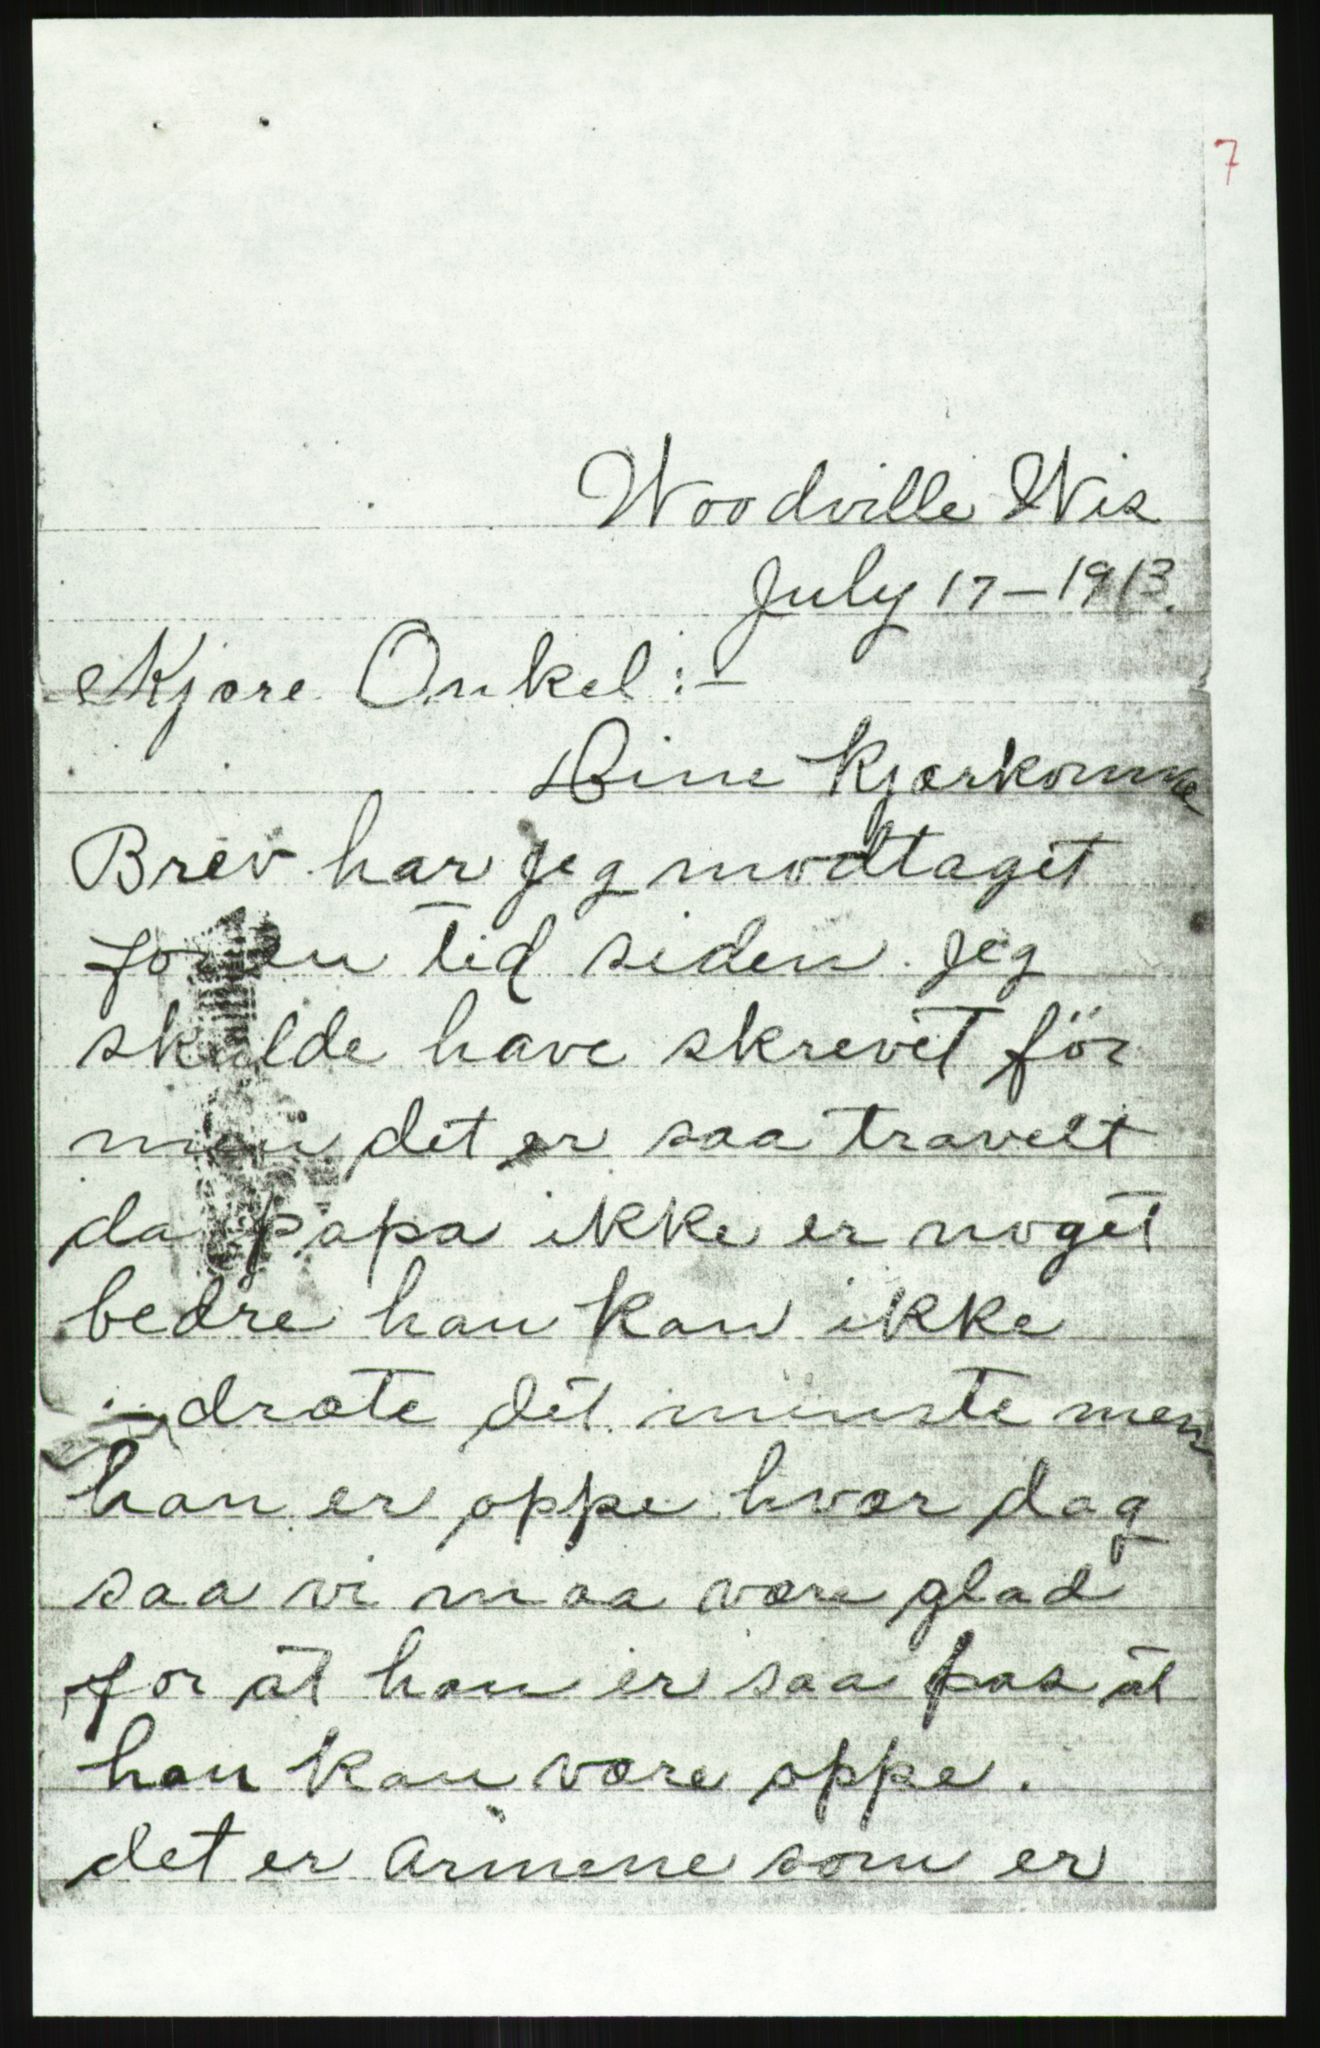 7
Woodville Wis
July 17 – 1913.
Kjære Onkel :–
Dine kjærkomne
Brev har jeg modtaget
for en tid siden. jeg
skulde have skrevet för
men det er saa travelt
da papa ikke er noget
bedre han kan ikke
dræte det minste men
han er oppe hvær dag
saa vi maa være glad
for at han er saa pas at
han kan være oppe.
det er armene som er